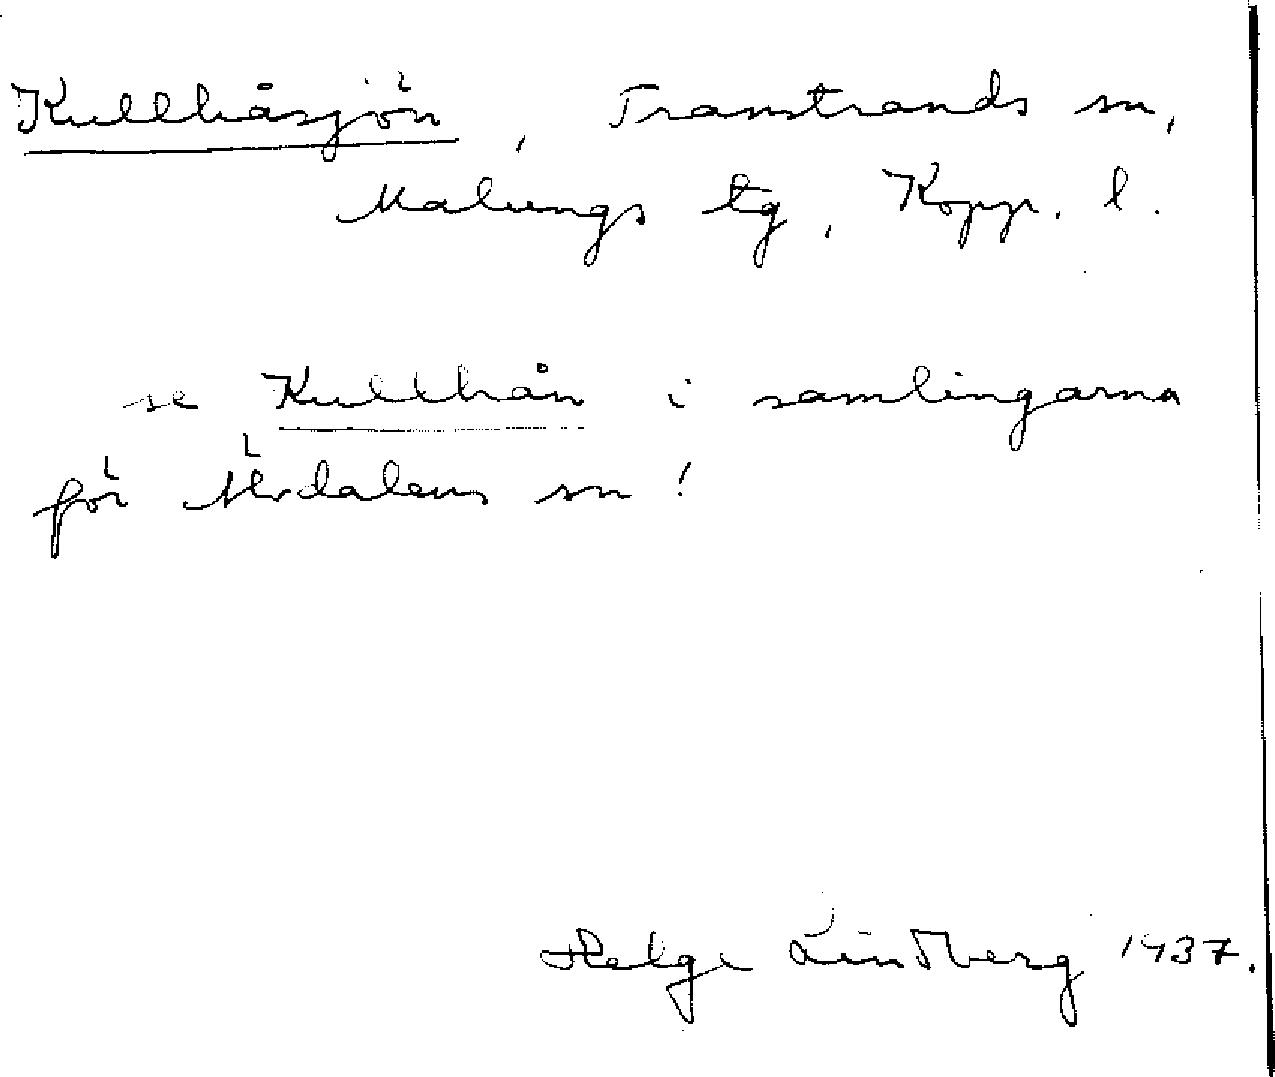 Kullhåsjön, Transtrands sn,
Malungs tg, Kopp. l.
se Kullhån i samlingarna
för Älvdalens sn!
Helge Lindberg 1937.